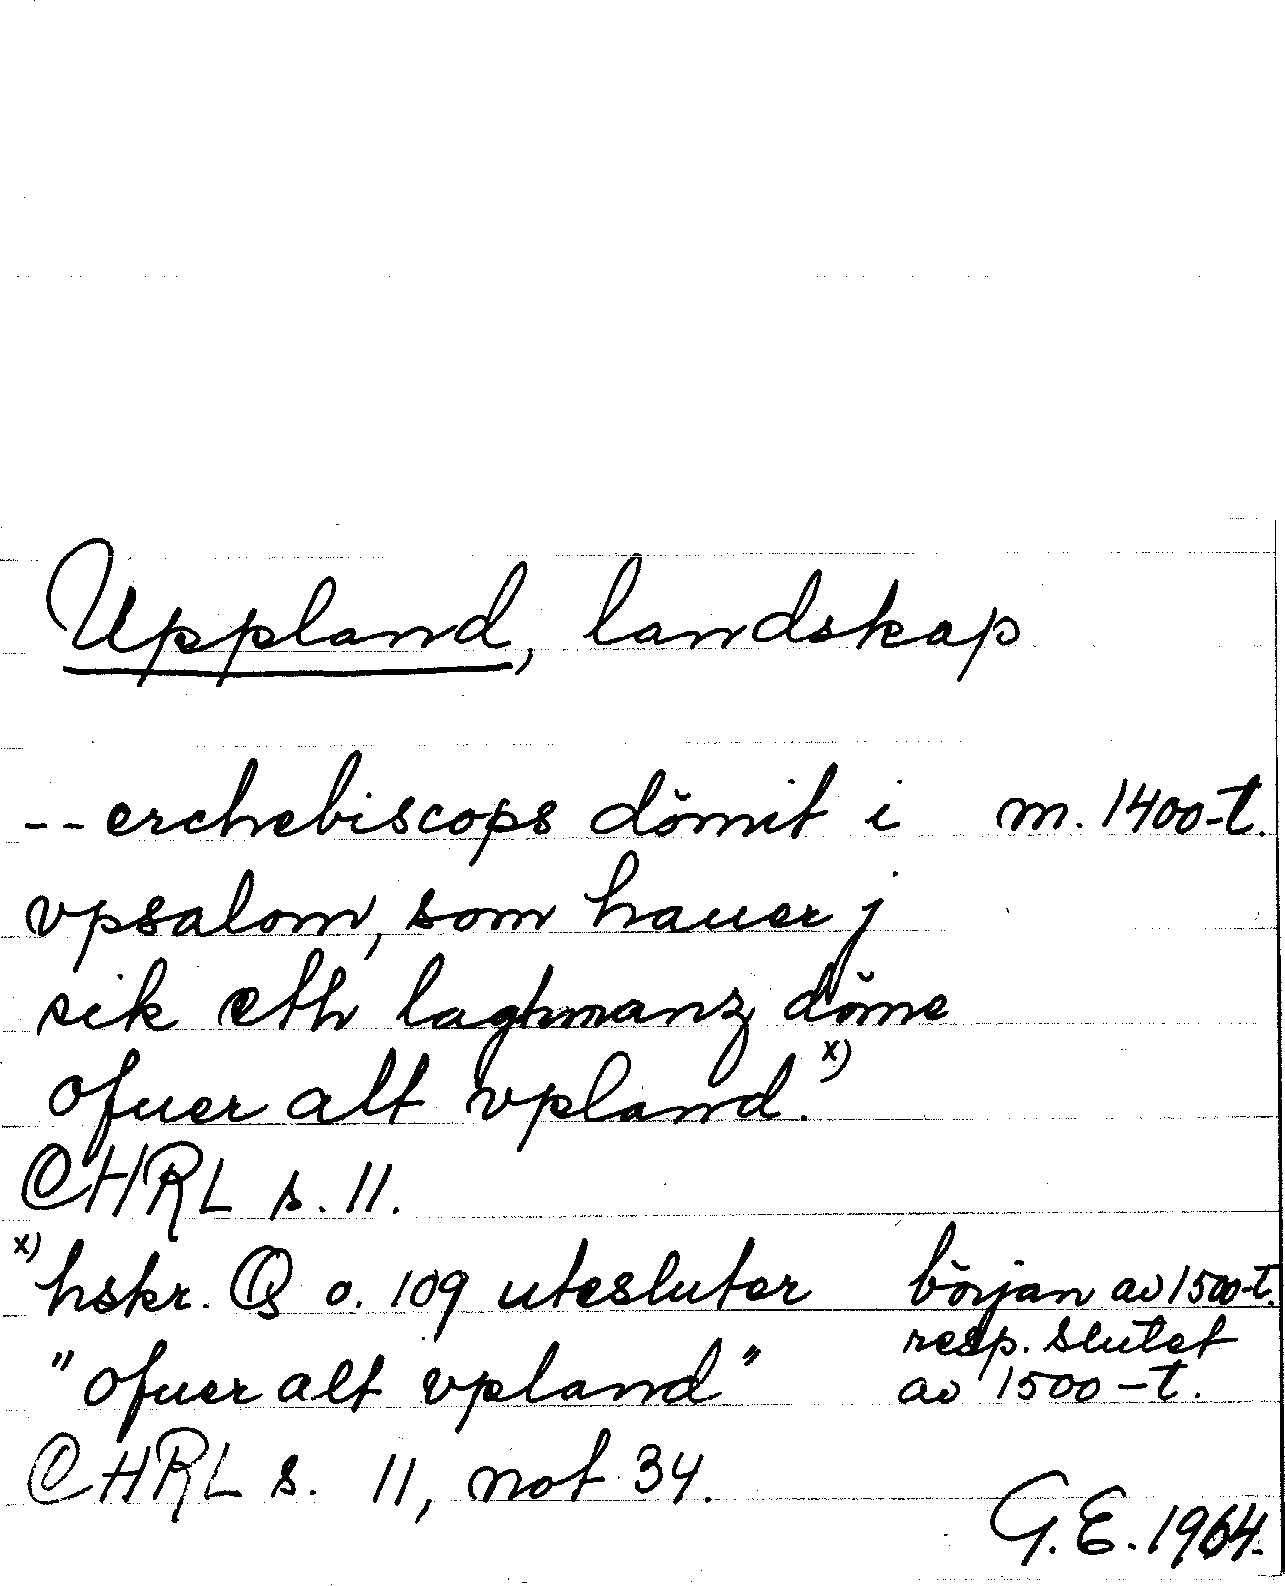 Uppland, landskap
-- erchebiscops dömit i m. 1400-t.
vpsalom, som hauer j
sik eth laghmanz döme
ofuer alt vpland. x)
CHRL s. 11.
x) hskr. Q o. 109 utesluter början av 1500-t.
resp. slutet
"ofuer alt vpland" av 1500-t.
CHRL s. 11, not 34.
G.E. 1964.